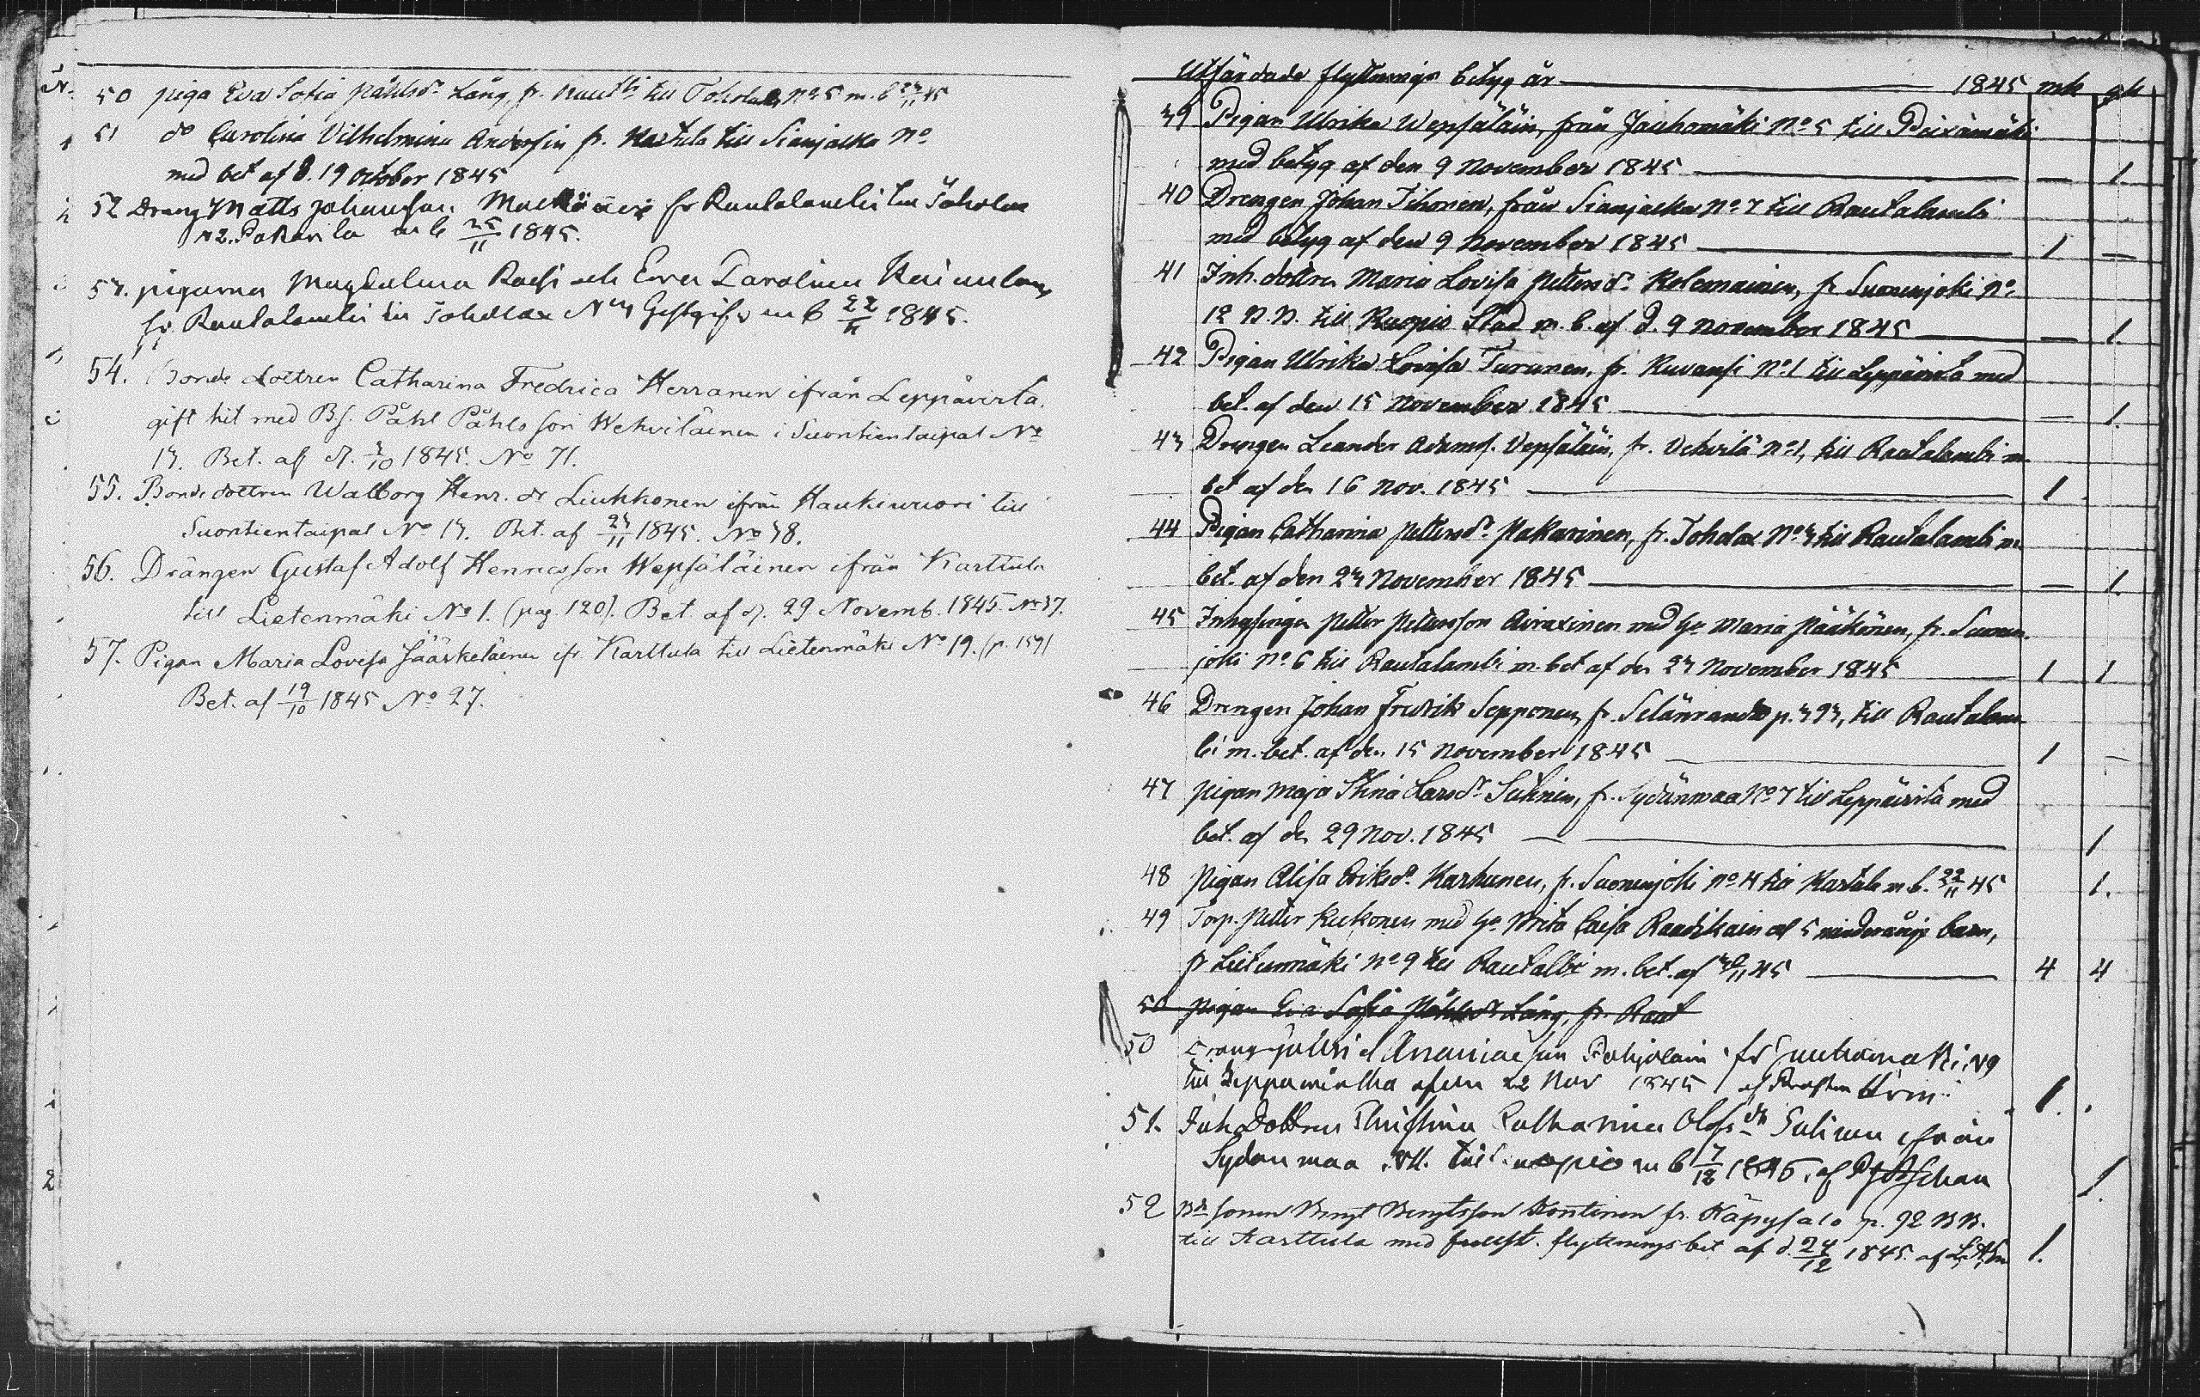 N.
50 piga Eva Sofia Påhlsdr Lång, fr. Rautbi till Toholax No 5 m. b 23/11 45
51 do Carolina Vilhelmina Andersin fr. Kartula till Sianjalka No
med bet af d. 19 october 1845
52 Dräng Matts Johansson fr Rautalambi till Toholax
N 2. Pakarila m b 25/11 1845.
53. pigorna Magdalena Raessi och Eva Carolina
fr. Rautalambi till Toholax N 3 Gestgifv m b 22/11 1845.
54. Bonde dottren Catharina Fredrica Herranen ifrån Leppävirta.
gift hit med Bs. Påhl Påhlsson Wehviläinen i Suontientaipal No
13. Bet. af d. 3/10 1845. No 71.
55. Bonde dottren Walborg Henr. dr Liukkonen ifrån Haukivuori till
Suontientaipal No 13. Bet. af 23/11 1845. No 38.
56. Drängen Gustaf Adolf Henricsson Wepsäläinen ifrån Karttula
till Lietenmäki No 1. (pag. 120). Bet. af d. 29 Novemb. 1845. No 37.
57. Pigan Maria Lovisa Jääskeläinen ifr. Karttula till Lietenmäki No 19. (p. 159)
Bet. af 19/10 1845 No 27.
Utfärdade flyttnings betyg år 1845 mk qk
39 Pigan Ulrika Wepsäläin, från Jauhomäki No 5 till Piexämäki
med betyg af den 9 November 1845 — 1.
40 Drengen Johan Tihonen, från Sianjalka No 7 till Rautalambi
med betyg af den 9 November 1845 1 —
41 Inh. dottren Maria Lovisa Pettersdr Kolemainen, fr Suonenjoki No
12 B.B. till Kuopio Stad m. b. af d. 9 november 1845 — 1.
42 Pigan Ulrika Lovisa Turunen, fr. Kuvansi No 1 till Leppävirta med
bet. af den 15 November 1845 — 1.
43 Drengen Leander Adamss. Vepsäläin, fr. Vehvilä No 1, till Rautalambi m
bet af den 16 Nov. 1845 1 .
44 Pigan Catharina Pettersdr Pakarinen, fr. Toholax No 3 till Rautalambi m
bet. af den 23 November 1845 — 1.
45 Inhysingen Petter Petersson Airaxinen med H:o Maria Pääkönen, fr. Suonen
joki No 6 till Rautalambi m. bet af den 23 November 1845 1 1
46 Drengen Johan Fredrik Sepponen, fr. Selänranda p. 393, till Rautalam
bi m. bet. af den 15 november 1845 1 —
47 pigan Maja Stina Larsdr Suhnin, fr. Sydänmaa No 7 till Leppävirta med
bet. af den 29 Nov. 1845 1
48 pigan Alisa Eriksdr Karhunen, fr. Suonenjoki No 4 till Kartula m b. 22/11 45 1.
49 Torp. Petter Kukonen med H:o Brita Caisa Raadikain och 5 minderårige barn,
fr Lietenmäki No 9 till Rautalbi m. bet. af 30/11 45 4 4
50 pigan Eva Sofia Påhlsdr Lång, fr. Raut
50 Dräng Gabriel Ananiasson Pohjolain fr Jauhomäki N9
till Leppävirtha af den 22 Nov 1845 af Prosten 1.
51. Inh Dottren Christina Catharina Olofsdr Suhnen ifrån
Sydänmaa till Kuopio m b 7/12 1845. af 1.
52 Bd sonen Bengt Bengtsson Kontinen fr. Käpysalo p. 92 B.B.
till Karttula med fullst. flyttningsbet af d. 24/12 1845. af 1.